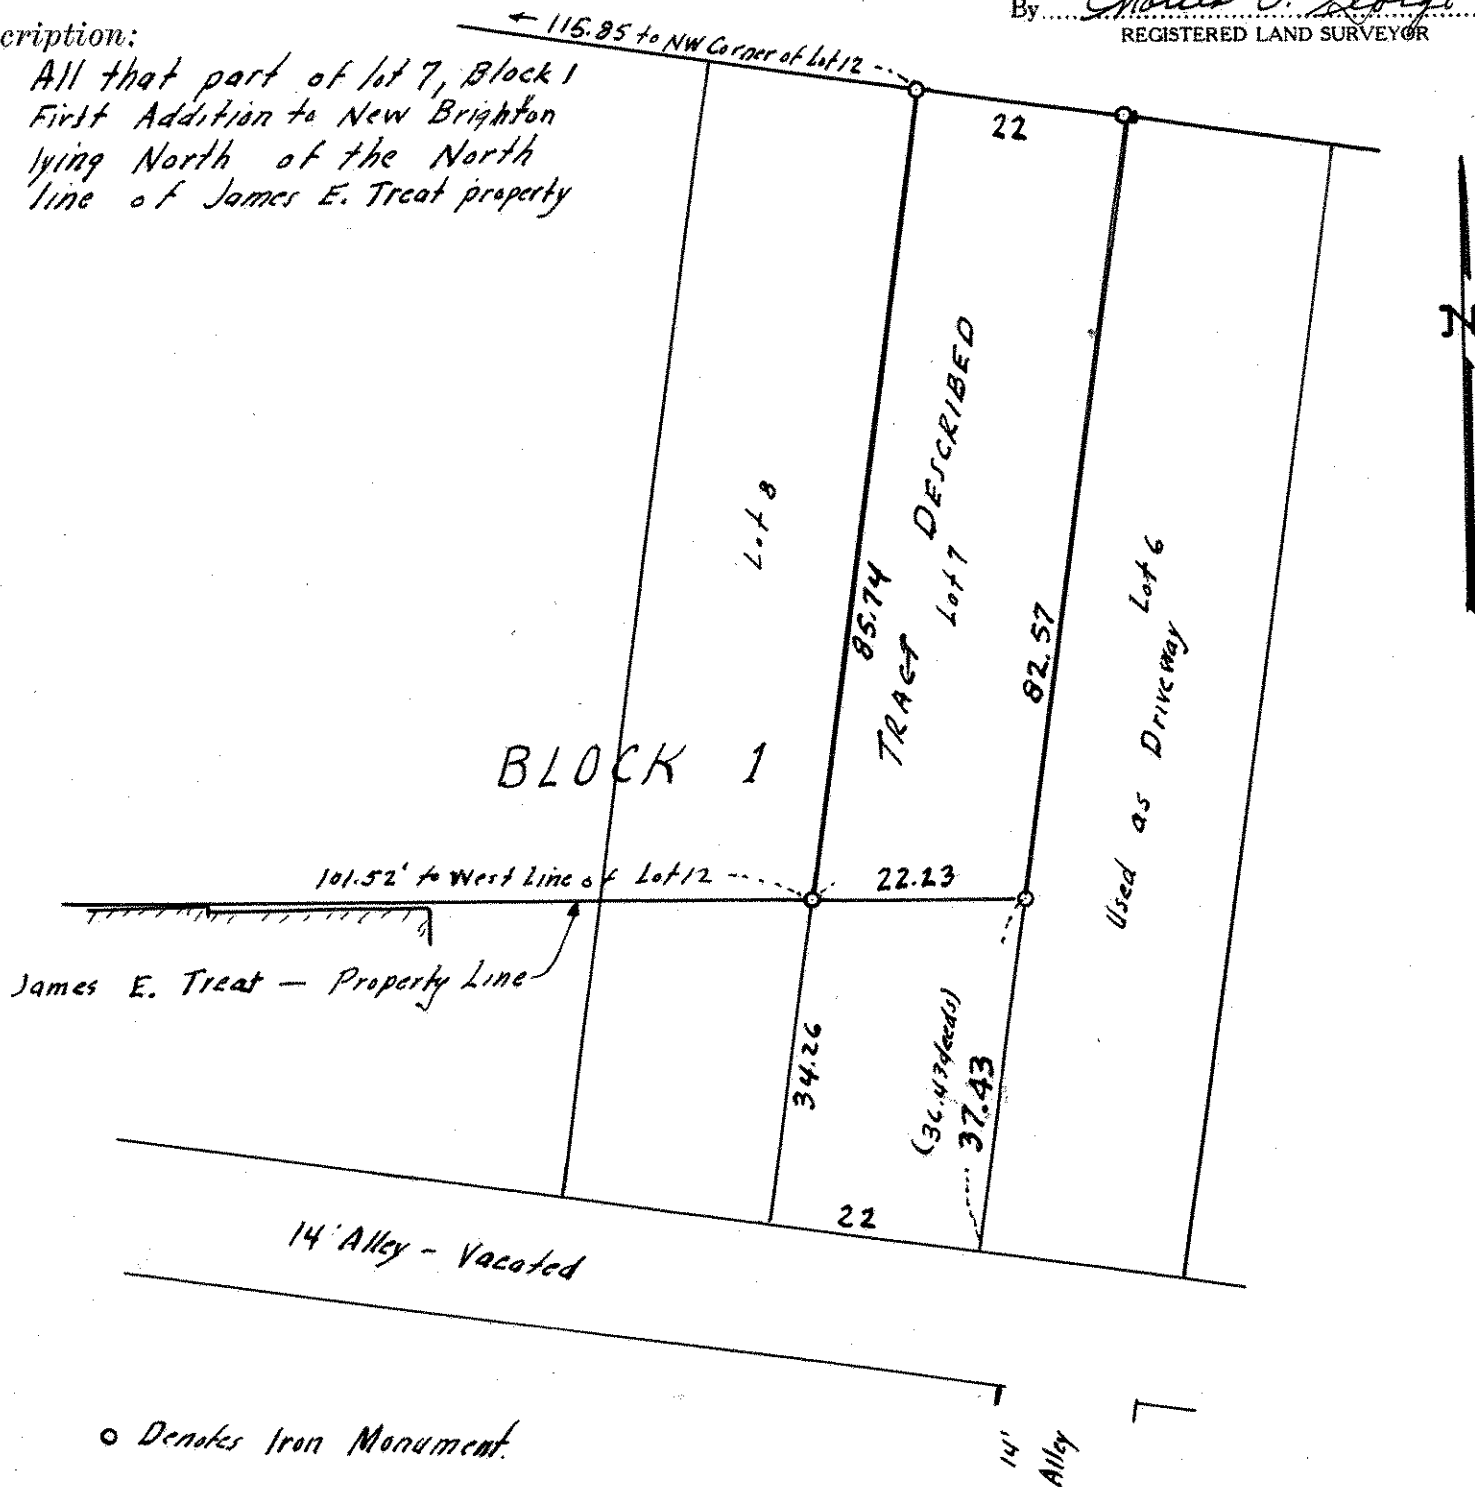 By
REGISTERED LAND SURVEYOR
cription:
All that part of lot 7, Block 1
First Addition to New Brighton
lying North of the North
line of James E. Treat property
115.85 to NW Corner of Lot 12
22
N
Lot 8
85.74
TRACT DESCRIBED
Lot 7
82.57
Lot 6
Used as Driveway
BLOCK 1
101.52' to West Line of Lot 12
22.23
James E. Treat — Property Line
34.26
(36.43 deeds)
37.43
22
14' Alley - Vacated
o Denotes Iron Monument.
14'
Alley